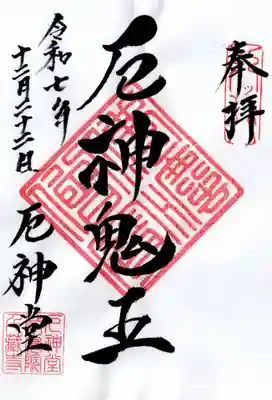 奉拝
厄神鬼王
令和七年
十二月二十二日
厄神堂